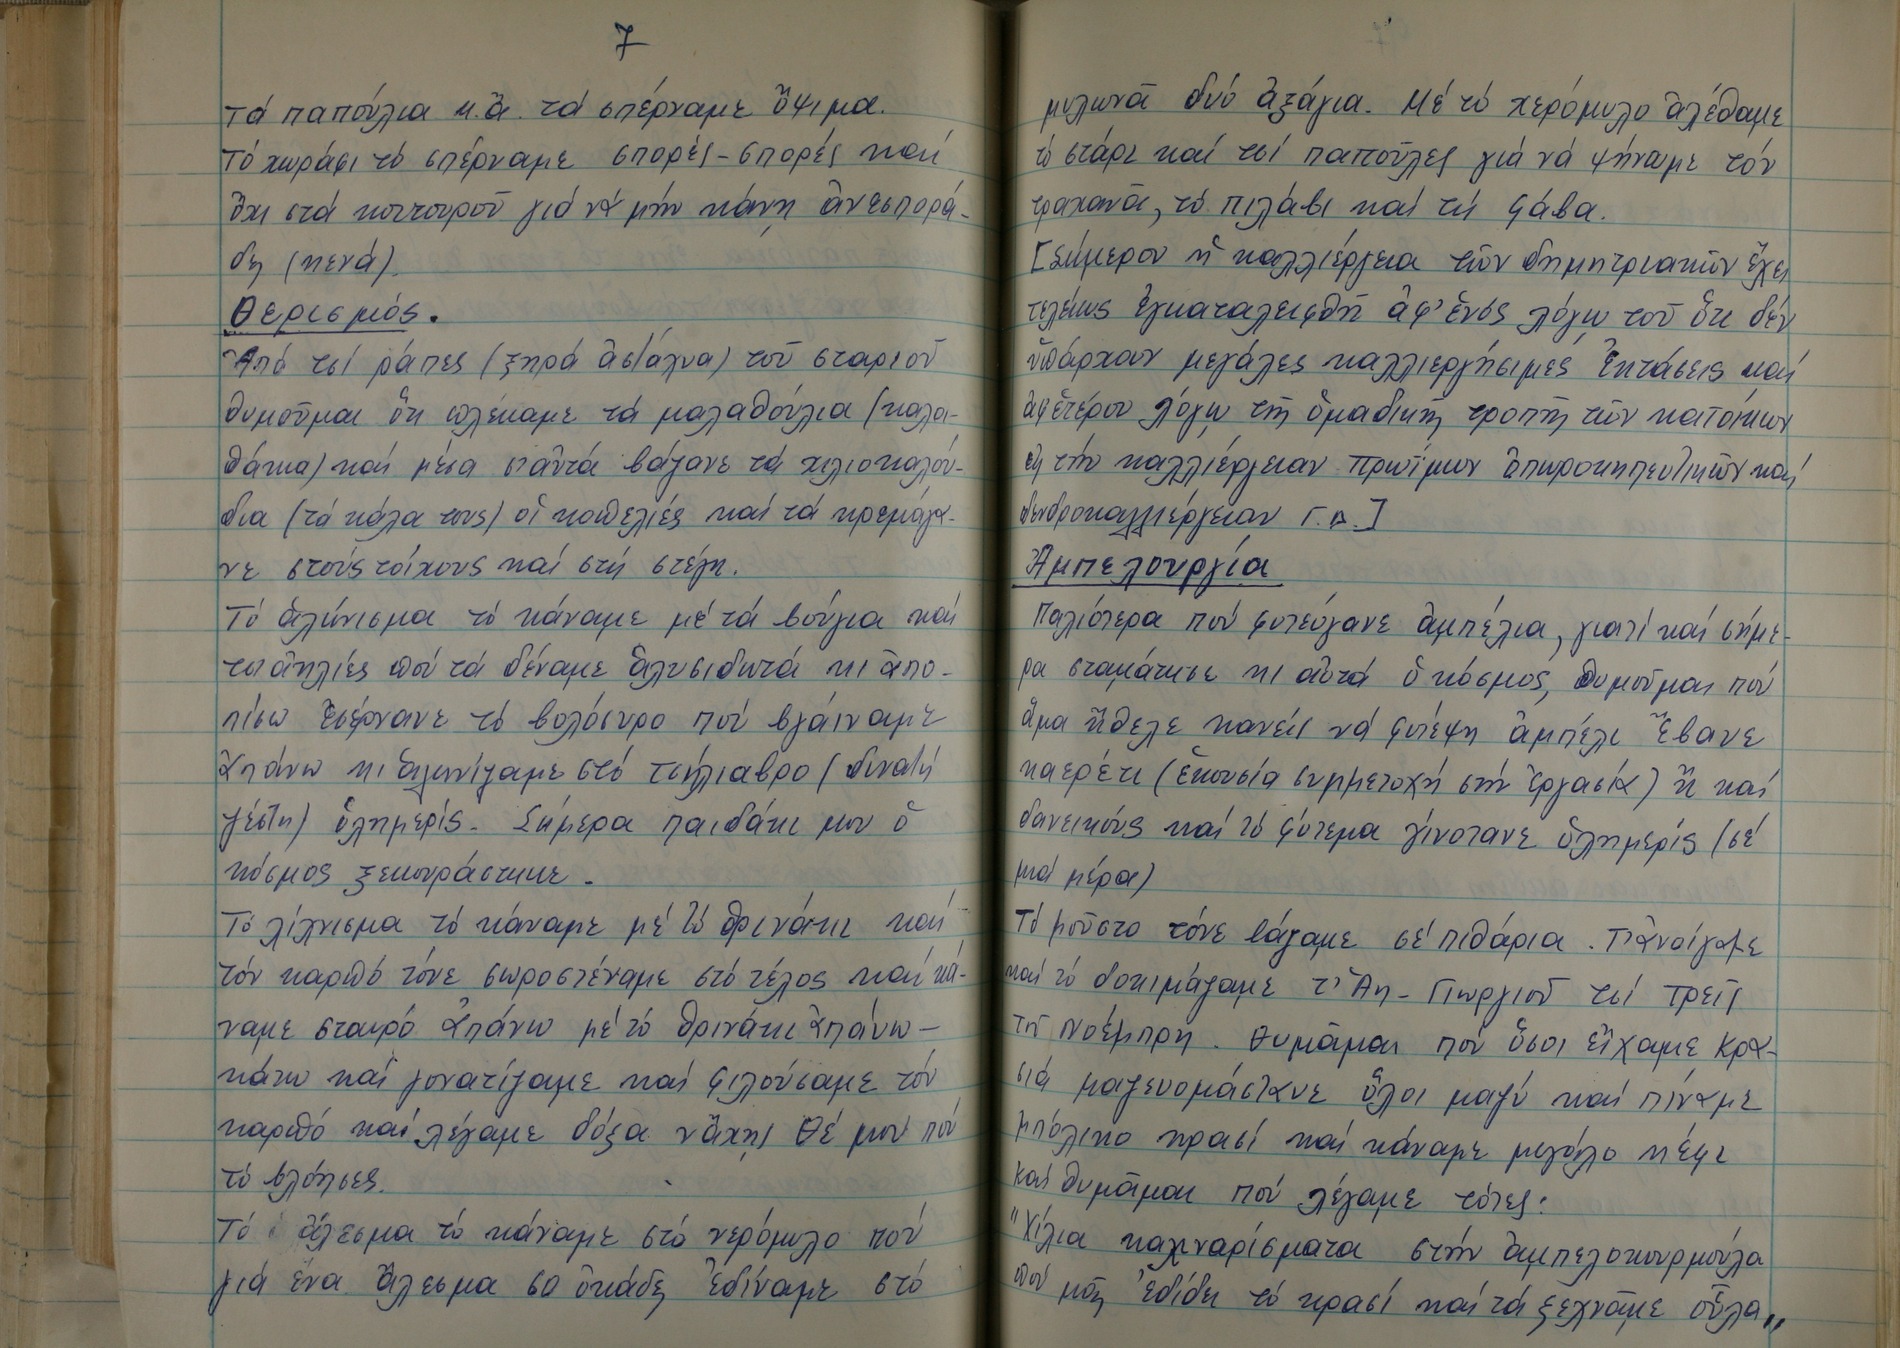 7
τά παπούλια κ.ἄ. τά σπέρναμε ὄψιμα.
Τό χωράφι τό σπέρναμε σπορές-σπορές καί
ὄχι στά κουτουροῦ γιά νά μήν κάνῃ ἀνεσπορά-
δες (κενά).
Θερισμός.
Ἀπό τσί ράπες (ξηρά ἀστάχυα) τοῦ σταριοῦ
θυμοῦμαι ὅτι πλέκαμε τά μαλαθούλια (καλα-
θάκια) καί μέσα σ'αὐτά βάζανε τά χιλιοκαλού-
δια (τά κάλα τους) οἱ κοπελιές καί τά κρεμάζα-
νε στούς τοίχους καί στή στέγη.
Τό ἁλώνισμα τό κάναμε μέ τά βούγια καί
τσ'ἀηλιές πού τά δέναμε ἁλυσιδωτά κι ἀπο-
πίσω ἐσέρνανε τό βολόσυρο πού βγάιναμε
ἀπάνω κι ἁλωνίζαμε στό τσήλιαβρο (δυνατή
ζέστη) ὁλημερίς. Σήμερα παιδάκι μου ὁ
κόσμος ξεκουράστηκε.
Τό λίχνισμα τό κάναμε μέ τό θρινάκι καί
τόν καρπό τόνε σωροστέναμε στό τέλος καί κά-
ναμε σταυρό ἀπάνω μέ τό θρινάκι ἀπάνω-
κάτω καί γονατίζαμε καί φιλούσαμε τόν
καρπό καί λέγαμε δόξα νἄχῃς Θέ μου πού
τό βλόησες.
Τό ἄλεσμα τό κάναμε στό νερόμυλο πού
γιά ἕνα ἄλεσμα 50 ὀκάδες ἐδίναμε στό
μυλωνᾶ δυό ἀξάγια. Μέ τό χερόμυλο ἀλέθαμε
τό στάρι καί τσί παπούλες γιά νά ψήνωμε τόν
τραχανᾶ, τό πιλάβι καί τή φάβα.
[Σήμερον ἡ καλλιέργεια τῶν δημητριακῶν ἔχει
τελείως ἐγκαταλειφθῆ ἀφ'ἑνός λόγω τοῦ ὅτι δέν
ὑπάρχουν μεγάλες καλλιεργήσιμες ἐκτάσεις καί
ἀφ'ἑτέρου λόγῳ τῆς ὁμαδικῆς τροπῆς τῶν κατοίκων
εἰς τήν καλλιέργειαν πρωΐμων ὀπωροκηπευτικῶν καί
δενδροκαλλιέργειαν Γ.Δ.]
Ἀμπελουργία
Παλιότερα πού φυτεύγανε ἀμπέλια, γιατί καί σήμε-
ρα σταμάτησε κι αὐτά ὁ κόσμος, θυμοῦμαι πού
ἅμα ἤθελε κανείς νά φυτέψη ἀμπέλι ἔβανε
καερέτι (ἑκουσία συμμετοχή στήν ἐργασία) ἤ καί
δανεικούς καί τό φύτεμα γίνοτανε ὁλημερίς (σέ
μιά μέρα)
Τό μοῦστο τόνε βάζαμε σέ πιθάρια. Τ'ἀνοίγαμε
καί τό δοκιμάζαμε τ'Ἁη-Γιωργιοῦ τσί τρεῖς
τοῦ Νοέμπρη. Θυμᾶμαι πού ὅσοι εἴχαμε κρα-
σιά μαζευομάστανε ὅλοι μαζύ καί πίναμε
μπόλικο κρασί καί κάναμε μεγάλο κέφι
καί θυμᾶμαι πού λέγαμε τότες:
"Χίλια καλιναρίσματα στήν ἀμπελοκουρμούλα
πού μᾶς ἐδίδει τό κρασί καί τά ξεχνᾶμε οὗλα"